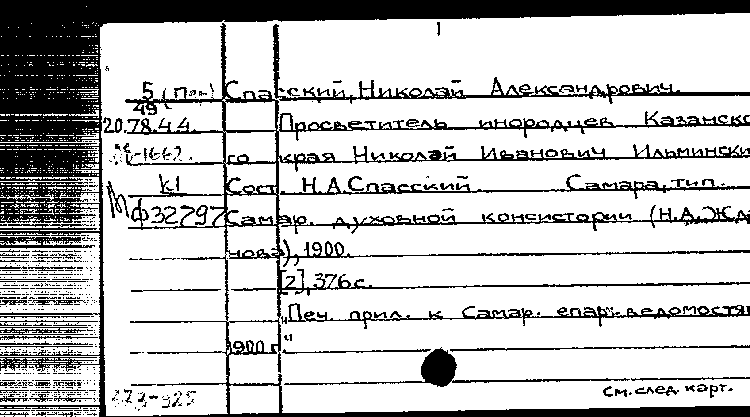 5 (Пои) Спасский, Николай Александрович.
49
20.78.44. Просветитель инородцев Казанско
-1662. го края Николай Иванович Ильмински
k1 Сост. Н.А.Спасский Самара, тип.
Мф32797 Самар. духовной консистории (Н.А.Жда
нова), 1900.
[2], 376 с.
„Печ. прил. к Самар. епарх. ведомостям
1900 г."
См. след. карт.